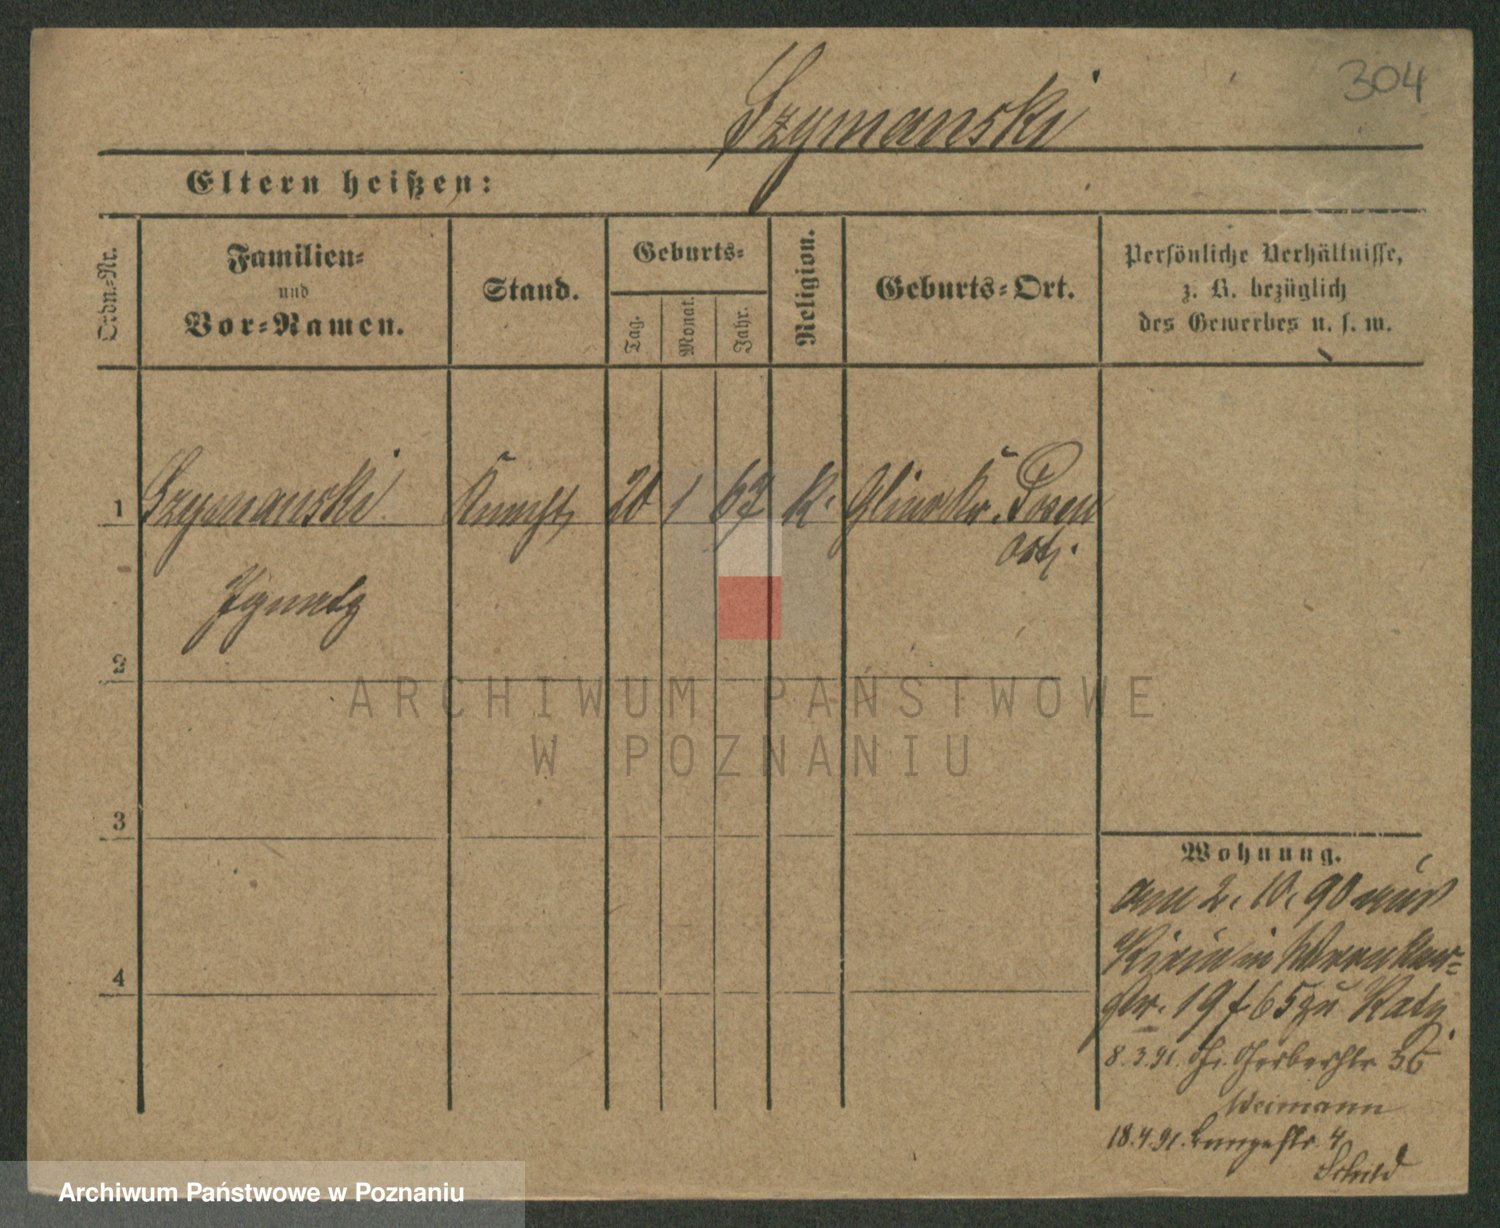 304
Szymanski
Eltern heißen:
Ordn.-Nr.
Familien-
und
Vor-Namen.
Stand.
Geburts-
Tag.
Monat.
Jahr.
Religion.
Geburts-Ort.
Persönliche Verhältnisse,
z. B. bezüglich
des Gewerbes u. s. w.
1 Szymanski Knecht 20 1 67 K. Kr. Posen
Ost.
Ignatz
2
3
4
ARCHIWUM PAŃSTWOWE
W POZNANIU
Wohnung.
am 2. 10. 90 aus
in
19 f 65 zu Ratz
8.3.91. Gr. Gerberstr 36
Weimann
18.4.91. Langestr. 4
Schuld
Archiwum Państwowe w Poznaniu